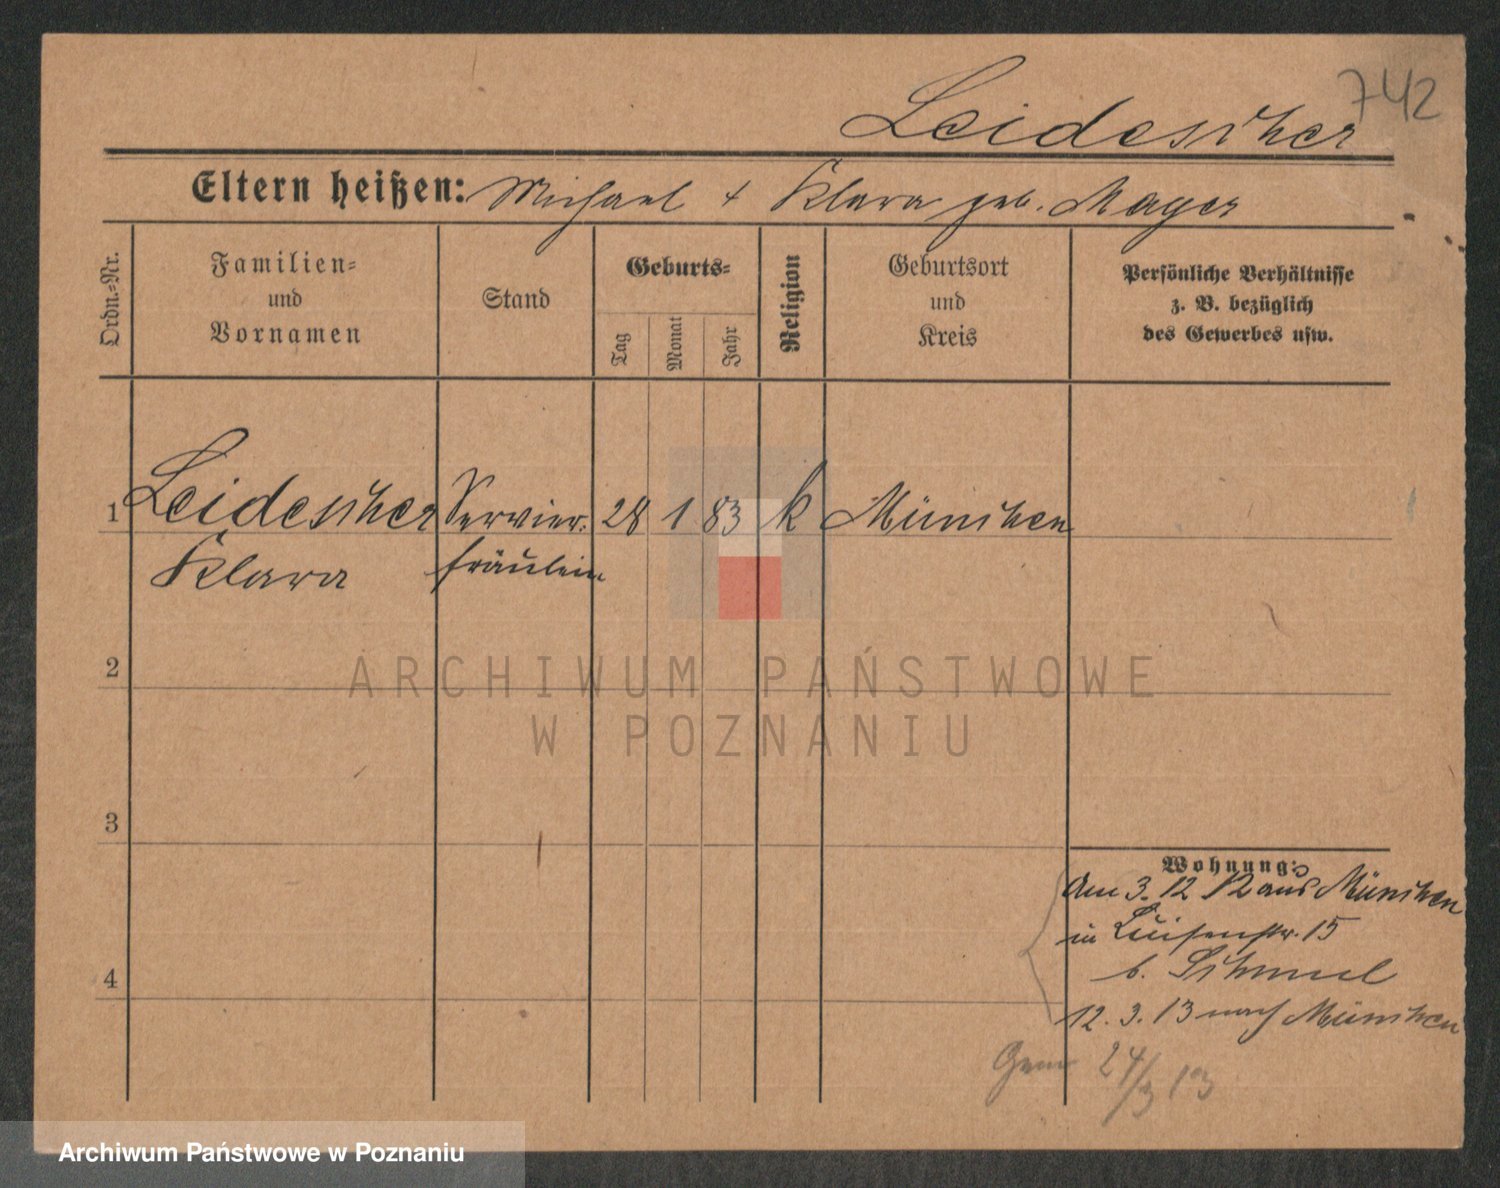 742
Leidescher
Eltern heißen: Michael + Klara geb. Mayer
Ordn.=Nr.
Familien=
und
Vornamen
Stand
Geburts=
Tag
Monat
Jahr
Religion
Geburtsort
und
Kreis
Persönliche Verhältnisse
z. B. bezüglich
des Gewerbes usw.
1 Leidescher Servier. 28 1 83 k München
Klara fräulein
2
3
4
Wohnung:
Am 3.12 12 aus München
in Luisenstr. 15
b. Schmul
12.3.13 nach München
Gem 24/3 13
ARCHIWUM PAŃSTWOWE
W POZNANIU
Archiwum Państwowe w Poznaniu